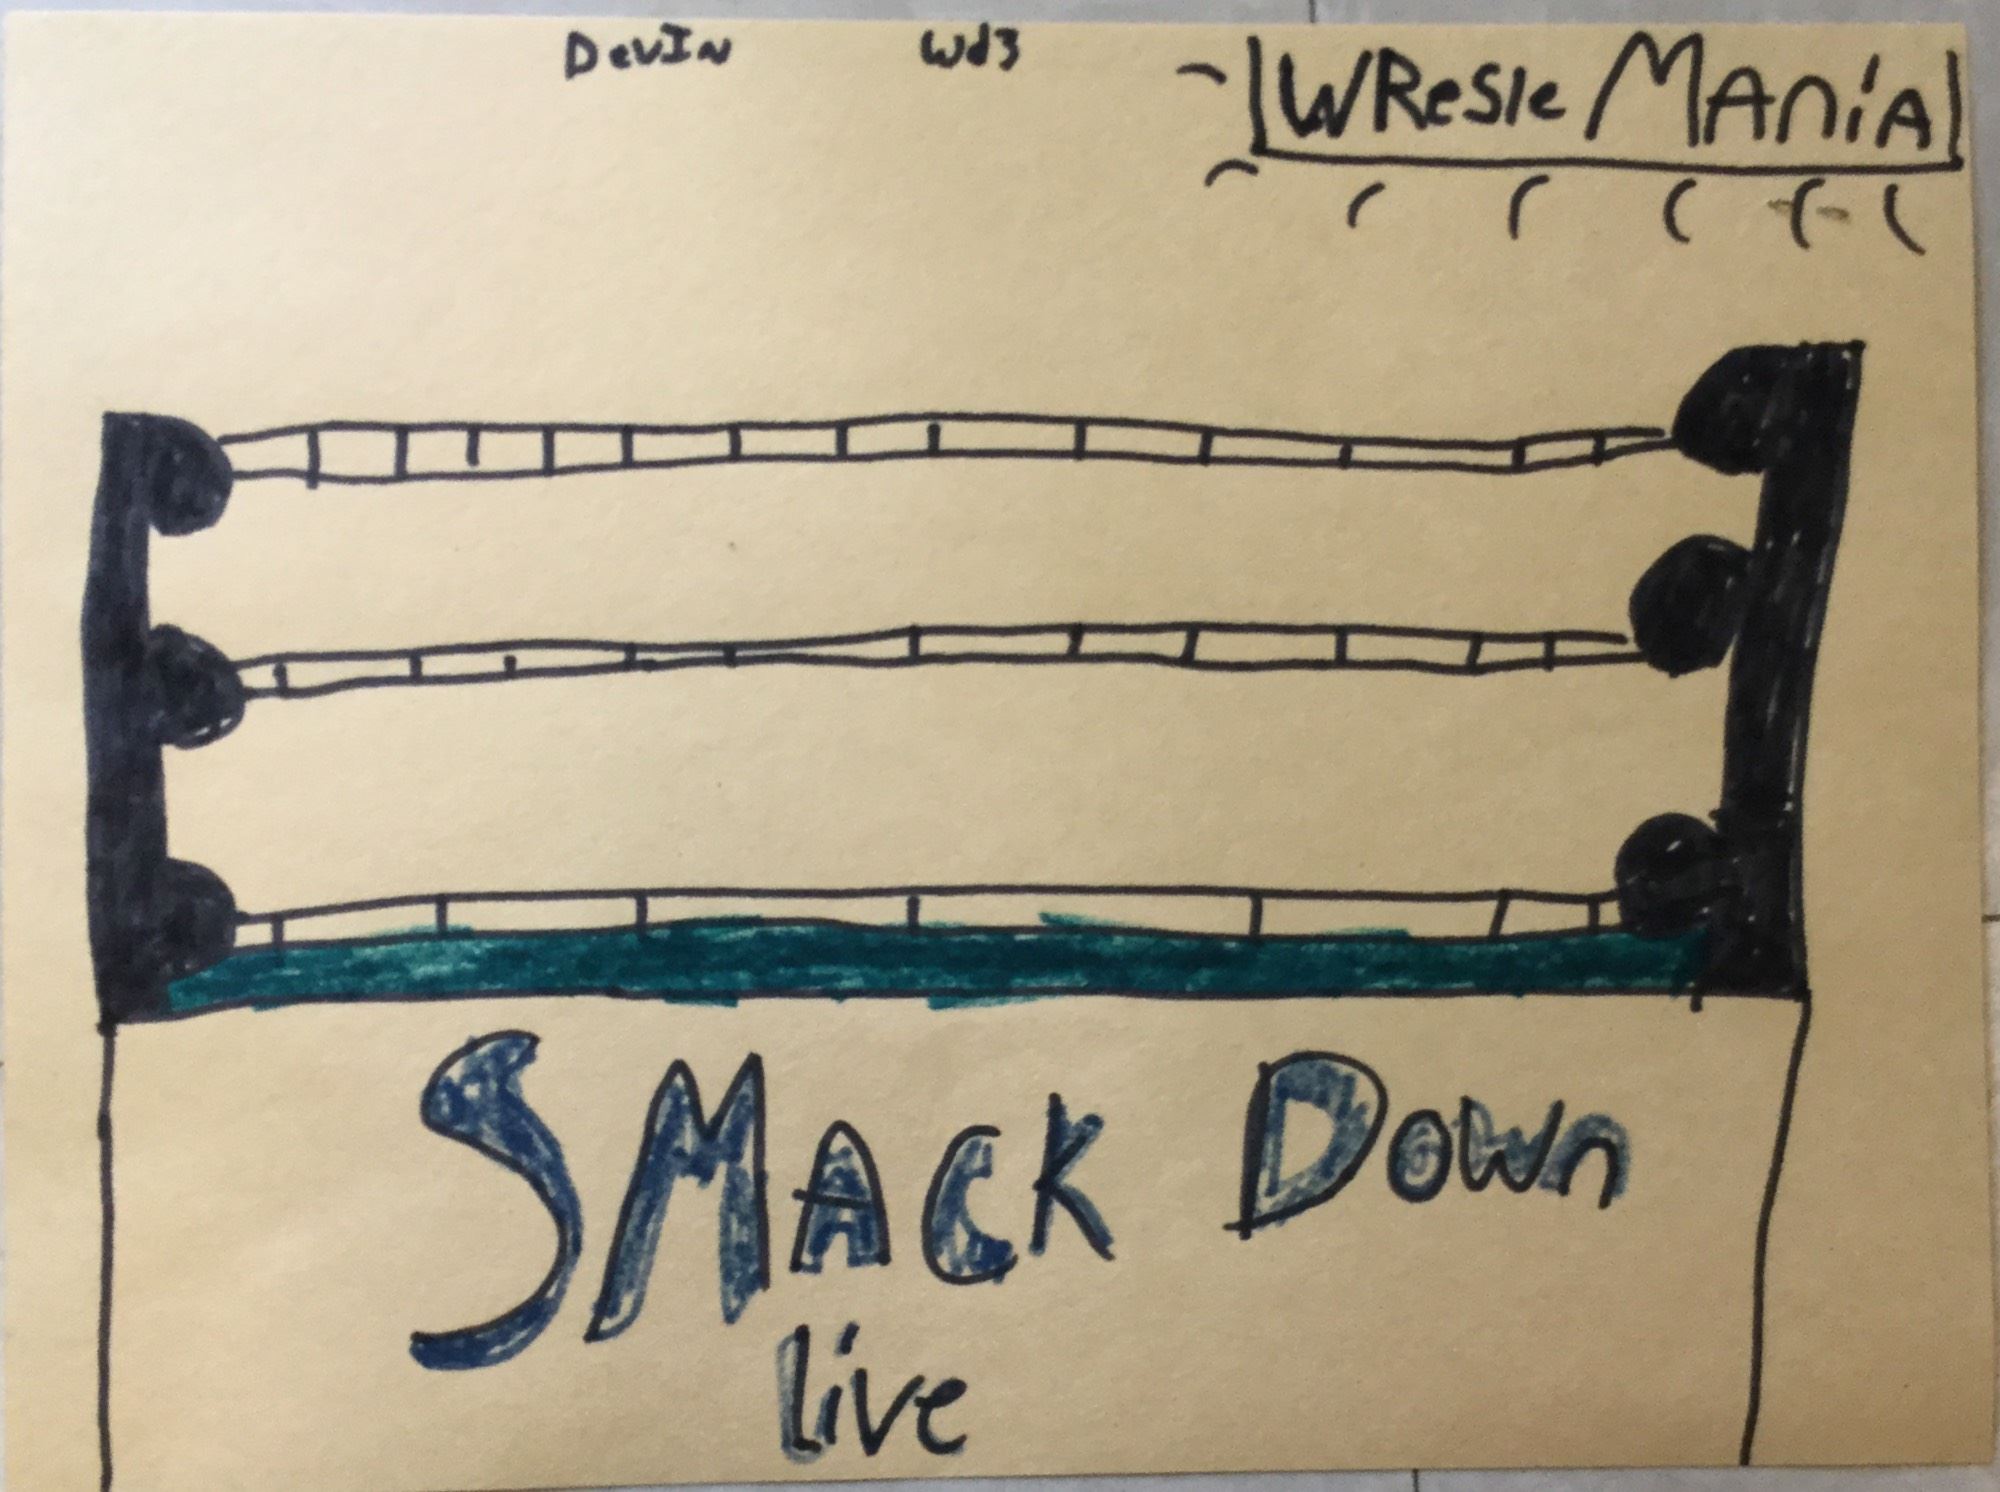 DevIN Wd3
WResle MAniA
SMAcK DOwn
live